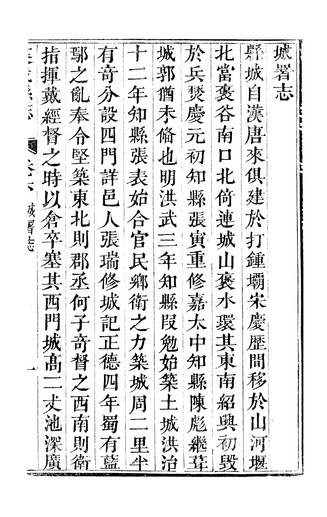 城署志
縣城自漢唐來俱建於打鍾壩宋慶歷間移於山河堰
北當褒谷南口北倚連城山褒水環其東南紹興初毀
於兵燹慶元初知縣張寅重修嘉太中知縣陳彪繼葺
城郭猶未脩也明洪武三年知縣叚勉始築土城洪治
十二年知縣張表始合官民鄉衛之力築城周二里半
有奇分設四門詳邑人張瑞修城記正德四年蜀有藍
鄢之亂奉令堅築東北則郡丞何子奇督之西南則衛
指揮戴經督之時以倉卒塞其西門城高二丈池深廣
卷六
城署志
一